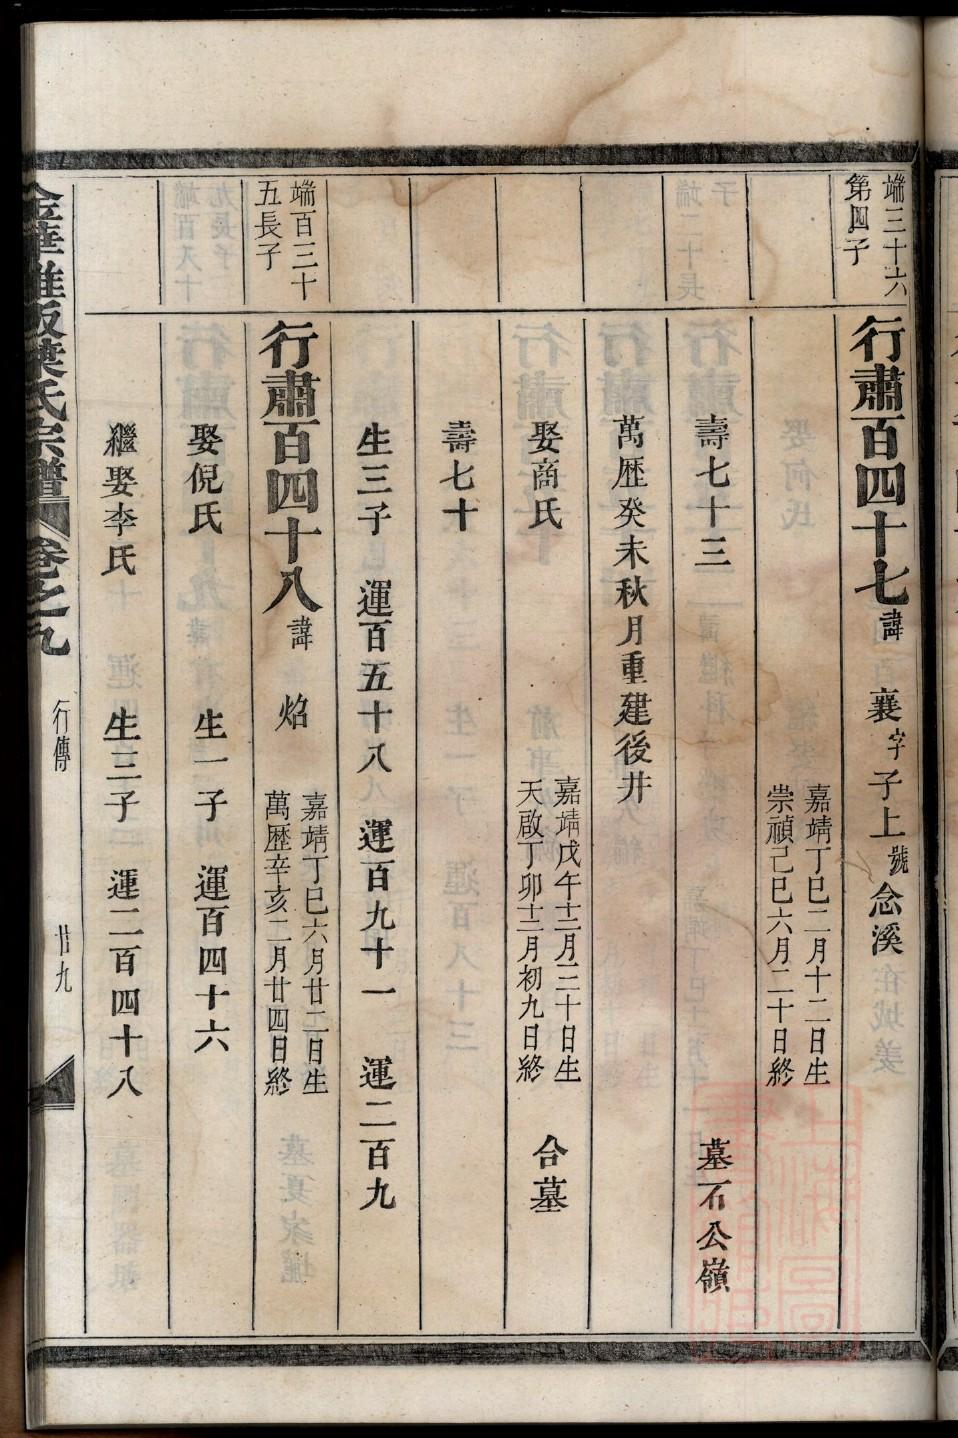 端三十六
第四子
行肅百四十七諱 襄字子上號念溪
嘉靖丁巳二月十二日生
崇禎己巳六月二十日終
壽七十三 墓石公嶺
萬歷癸未秋月重建後井
娶商氏 嘉靖戊午十二月三十日生
天啟丁卯十二月初九日終 合墓
壽七十
生三子 運百五十八 運百九十一 運二百九
端百三十
五長子
行肅百四十八諱 焰 嘉靖丁巳六月廿二日生
萬歷辛亥二月廿四日終
娶倪氏 生一子 運百四十六
繼娶李氏 生二子 運二百四十八
葉氏宗譜 卷之九 行傳 廿九